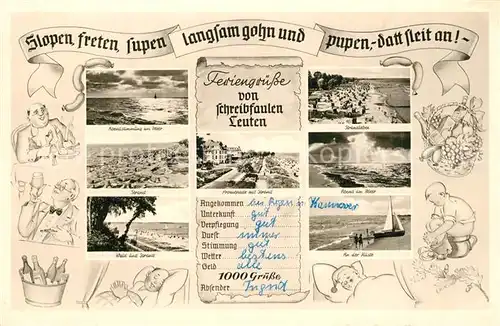 Slopen, freten, supen langsam gohn und pupen,-datt sleit an!-
Feriengrüße
von
schreibfaulen
Leuten
Abendstimmung am Meer
Strand
Wald und Strand
Promenade mit Strand
Strandleben
Abend am Meer
An der Küste
Angekommen bei Regen in Hannover
Unterkunft gut
Verpflegung gut
Durst immer
Stimmung gut
Wetter bestens
Geld alle
1000 Grüße
Absender Ingrid